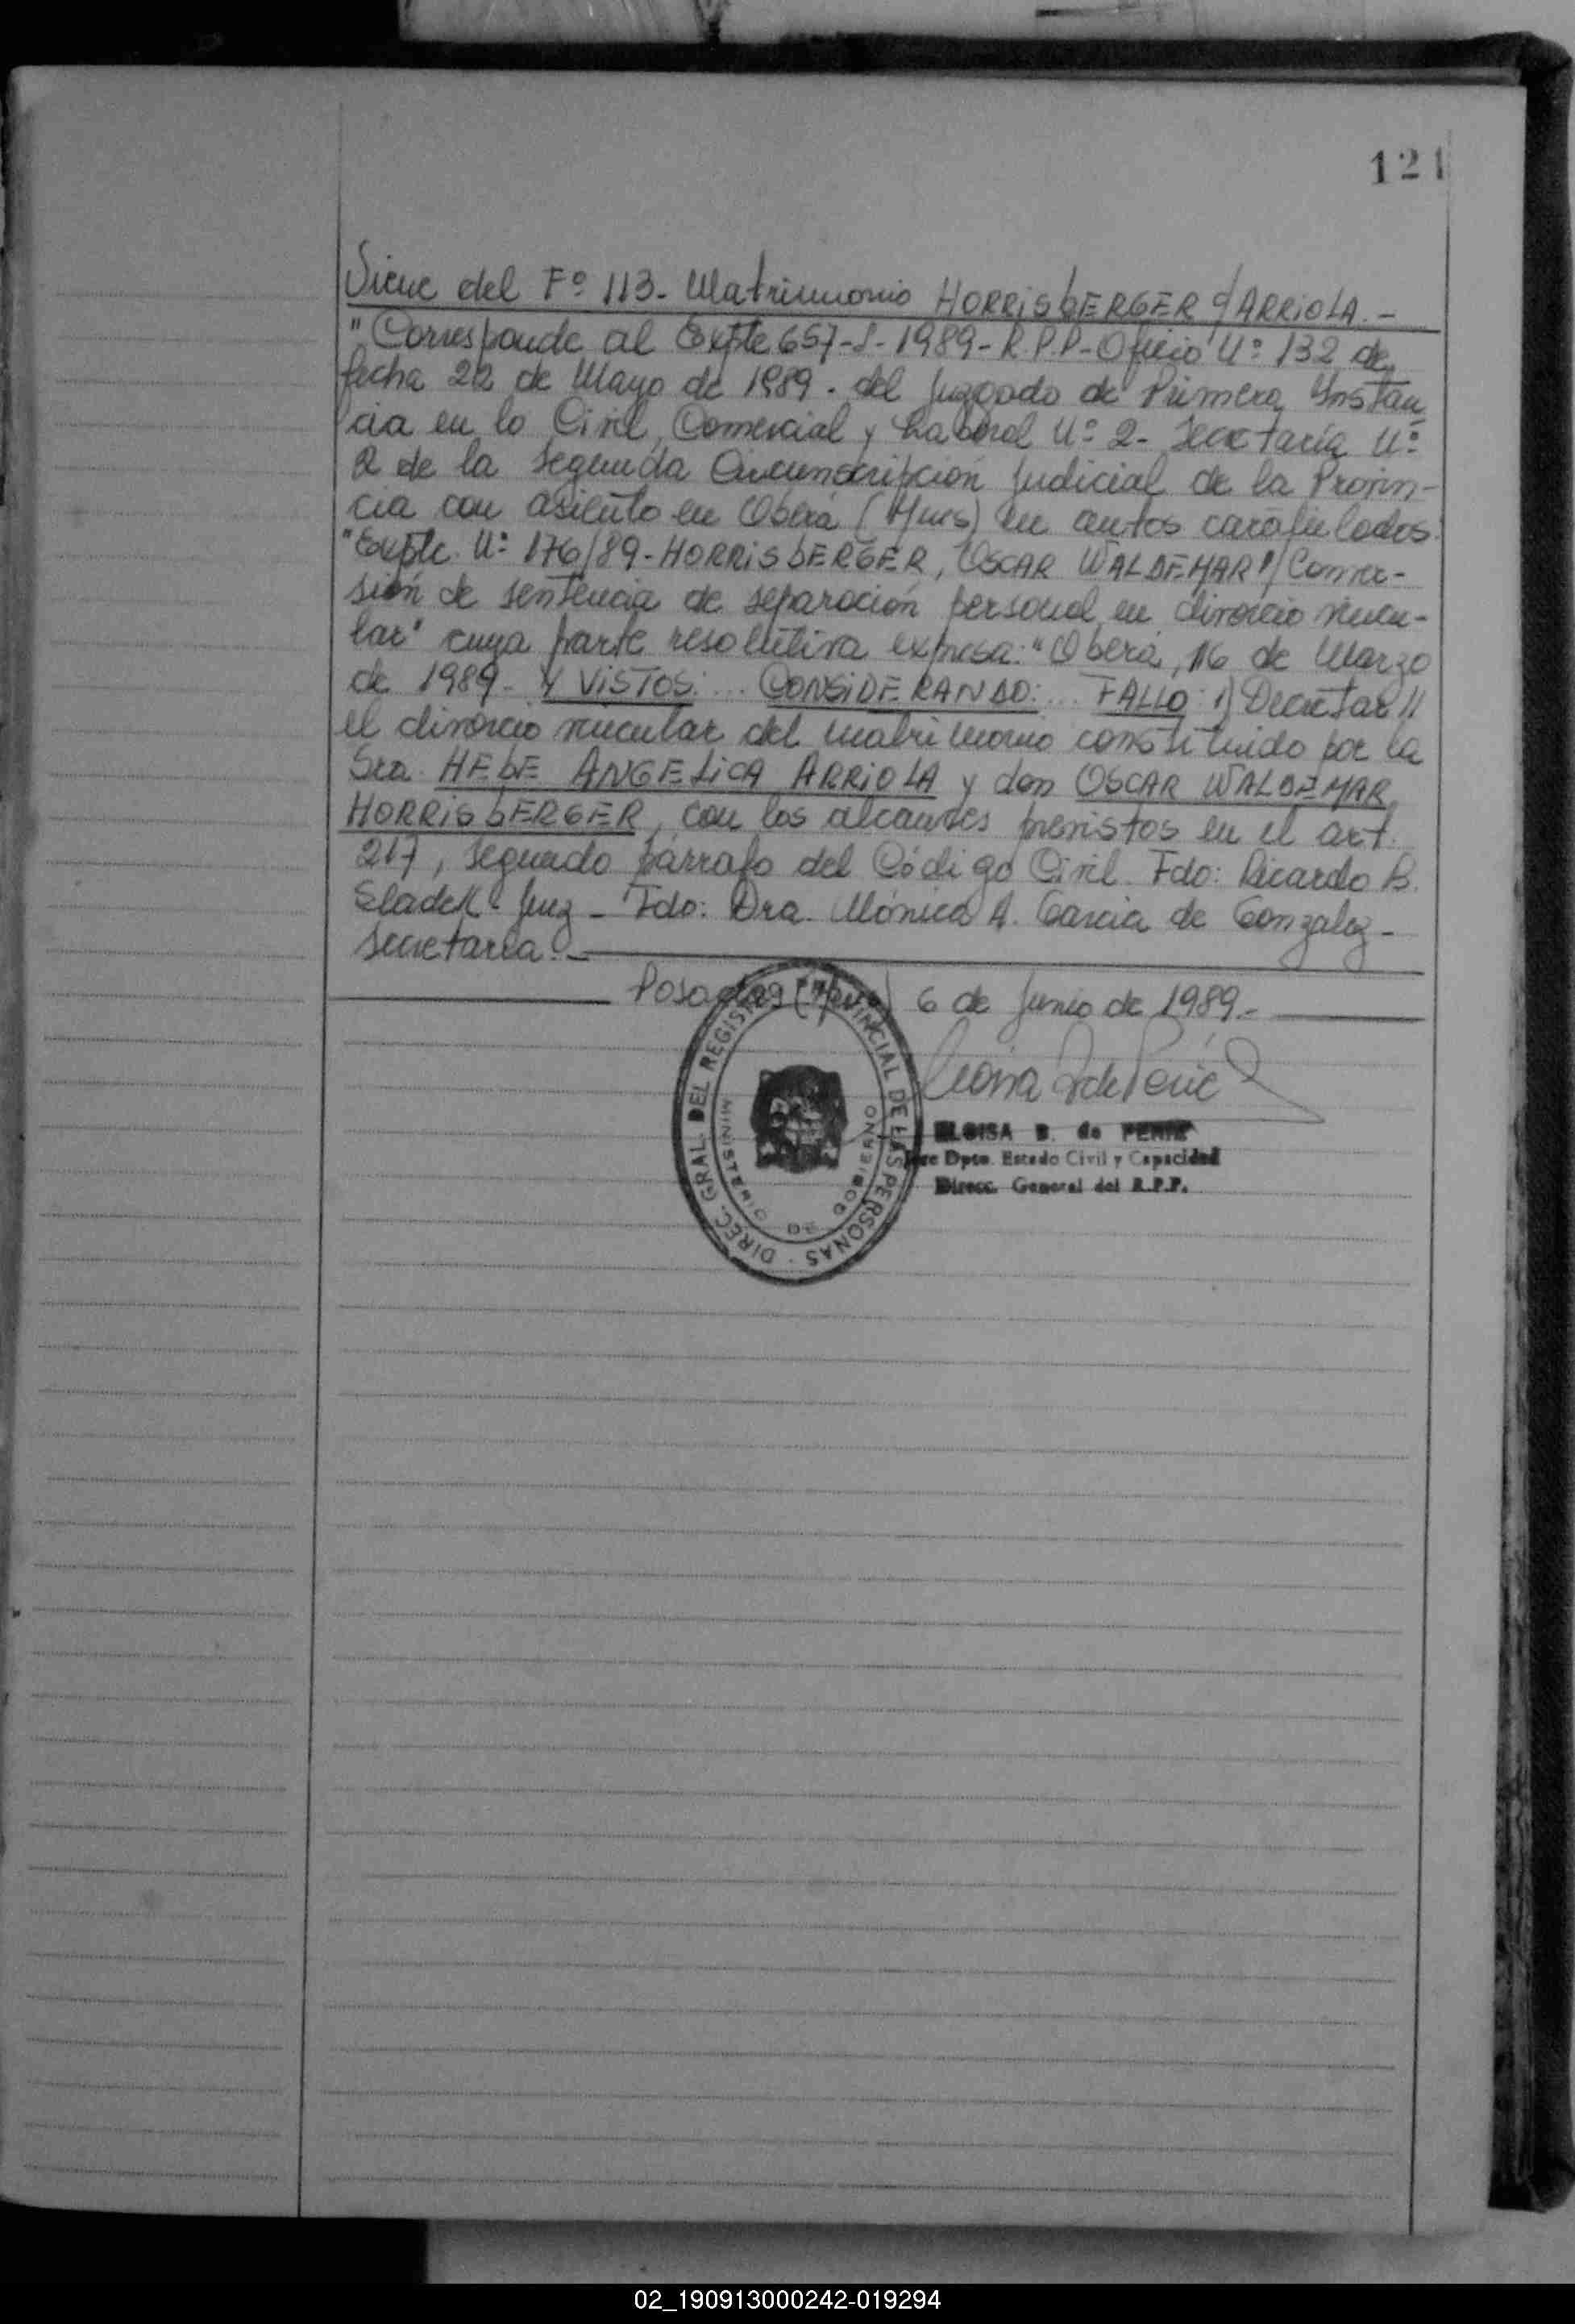 121
Viene del Fº 113- Matrimonio HORRISBERGER c/ ARRIOLA.-
"Corresponde al Expte 657-J-1989- R.P.P- Oficio Nº 132 de
fecha 22 de Mayo de 1989. del Juzgado de Primera Instan
cia en lo Civil, Comercial y Laboral Nº 2- Secretaría Nº
2 de la segunda Circunscripción Judicial de la Provin-
cia con asiento en Oberá (Mnes) en autos caratulados:
"Expte Nº 176/89- HORRISBERGER, OSCAR WALDEMAR P/ Conver-
sión de sentencia de separación personal en divorcio vincu-
lar" cuya parte resolutiva expresa: "Oberá, 16 de Marzo
de 1989- Y VISTOS:... CONSIDERANDO:... FALLO: 1) Decretar //
el divorcio vincular del matrimonio constituido por la
Sra. HEBE ANGELICA ARRIOLA y don OSCAR WALDEMAR
HORRISBERGER, con los alcances previstos en el art.
217, segundo párrafo del Código Civil. Fdo: Ricardo B.
Sladek- Juez- Fdo: Dra. Mónica A. Garcia de Gonzalez-
Secretaria.-
Posadas (Mnes) 6 de Junio de 1989.-
DIREC. GRAL. DEL REGISTRO PROVINCIAL DE LAS PERSONAS
MINISTERIO DE GOBIERNO
ELOISA B. de
Jefe Dpto. Estado Civil y Capacidad
Direcc. General del R.P.P.
02_190913000242-019294